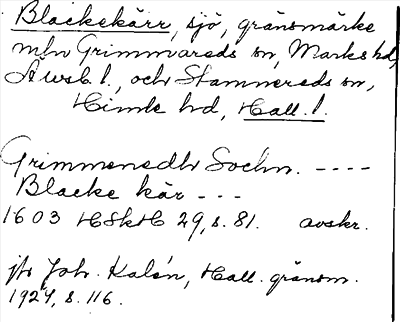 Blackekärr, sjö, gränsmärke
mln Grimmareds sn, Marks hd,
Älvsb. l., och Stamnareds sn,
Himle hd, Hall. l.
Grimmenedh Sochn. ----
Blacke kär ---
1603 HSkH 29, s. 81. avskr.
jfr Joh. Kalén, Hall. gränsm.
1924, s. 116.